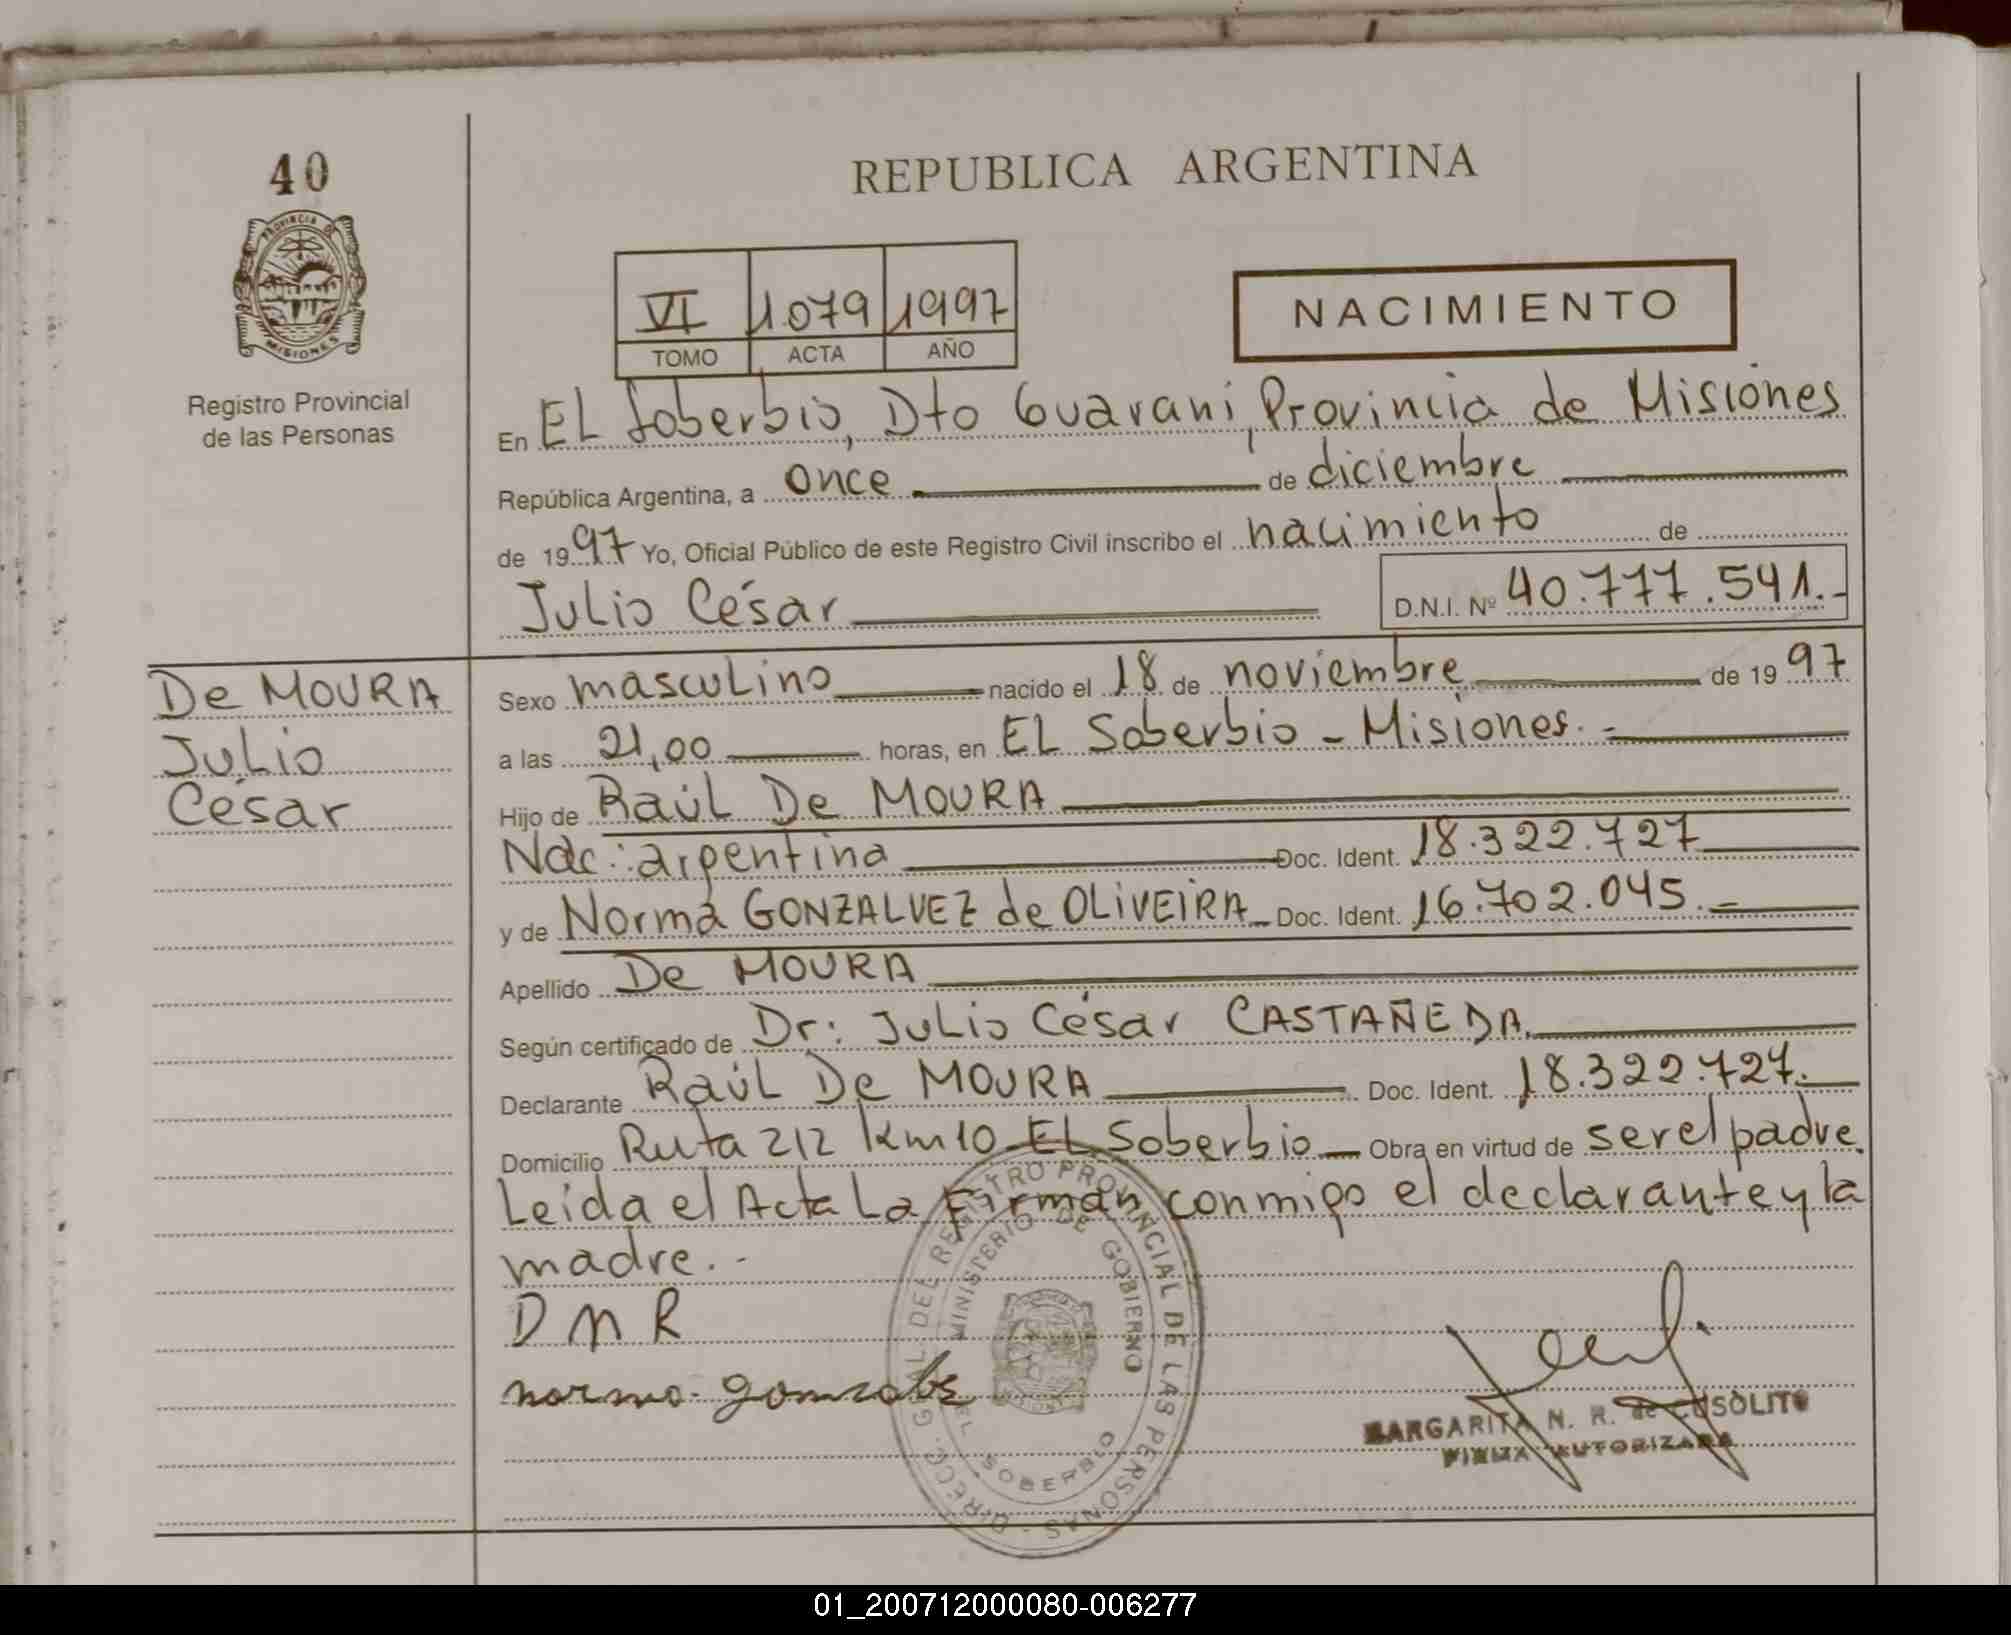 40
PROVINCIA DE
MISIONES
Registro Provincial
de las Personas
REPUBLICA ARGENTINA
VI 1079 1997
TOMO ACTA AÑO
NACIMIENTO
En EL Soberbio, Dto Guaraní, Provincia de Misiones
República Argentina, a once de diciembre
de 1997 Yo, Oficial Público de este Registro Civil inscribo el nacimiento de
Julio César D.N.I. Nº 40.777.541.-
De MOURA
Julio
César
Sexo masculino nacido el 18 de noviembre de 1997
a las 21,00 horas, en EL Soberbio - Misiones.-
Hijo de Raúl De MOURA
Nac: argentina Doc. Ident. 18.322.727
y de Norma GONZALVEZ de OLIVEIRA Doc. Ident. 16.702.045.-
Apellido De MOURA
Según certificado de Dr: Julio César CASTAÑEDA.
Declarante Raúl De MOURA Doc. Ident. 18.322.727.
Domicilio Ruta 212 Km 10 EL Soberbio Obra en virtud de ser el padre.
Leída el Acta La Firman conmigo el declarante y la
madre.-
D M R
norma gonzalvez
DIRECC. GRAL. DEL REGISTRO PROVINCIAL DE LAS PERSONAS -
MINISTERIO DE GOBIERNO
EL SOBERBIO
MARGARITA N. R. de CUSOLITO
FIRMA AUTORIZADA
01_200712000080-006277